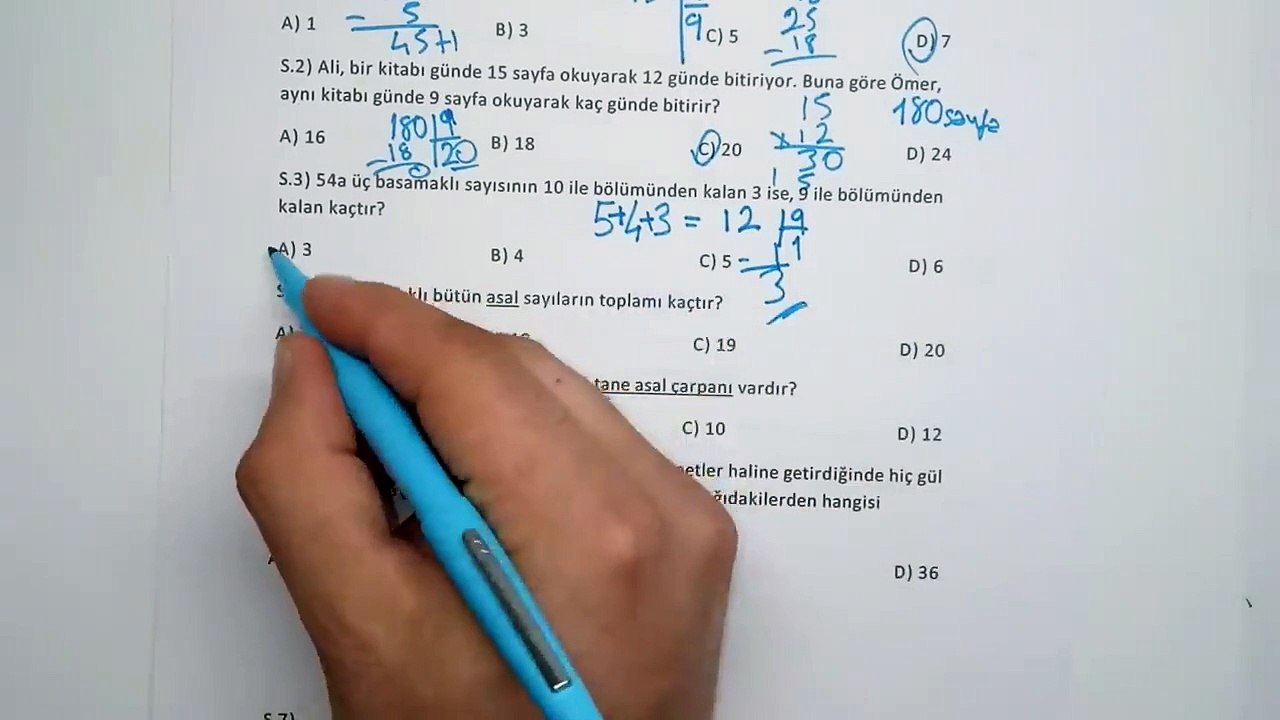 A) 1
- 5
45+1
B) 3
9
C) 5
25
- 18
D) 7
S.2) Ali, bir kitabı günde 15 sayfa okuyarak 12 günde bitiriyor. Buna göre Ömer,
aynı kitabı günde 9 sayfa okuyarak kaç günde bitirir?
15
x 12
30
15
180 sayfa
A) 16
180 9
- 18 20
0
B) 18
C) 20
D) 24
S.3) 54a üç basamaklı sayısının 10 ile bölümünden kalan 3 ise, 9 ile bölümünden
kalan kaçtır?
5+4+3 = 12 9
1
3
A) 3
B) 4
C) 5
D) 6
bütün asal sayıların toplamı kaçtır?
C) 19
D) 20
tane asal çarpanı vardır?
C) 10
D) 12
haline getirdiğinde hiç gül
hangisi
D) 36
S.7)